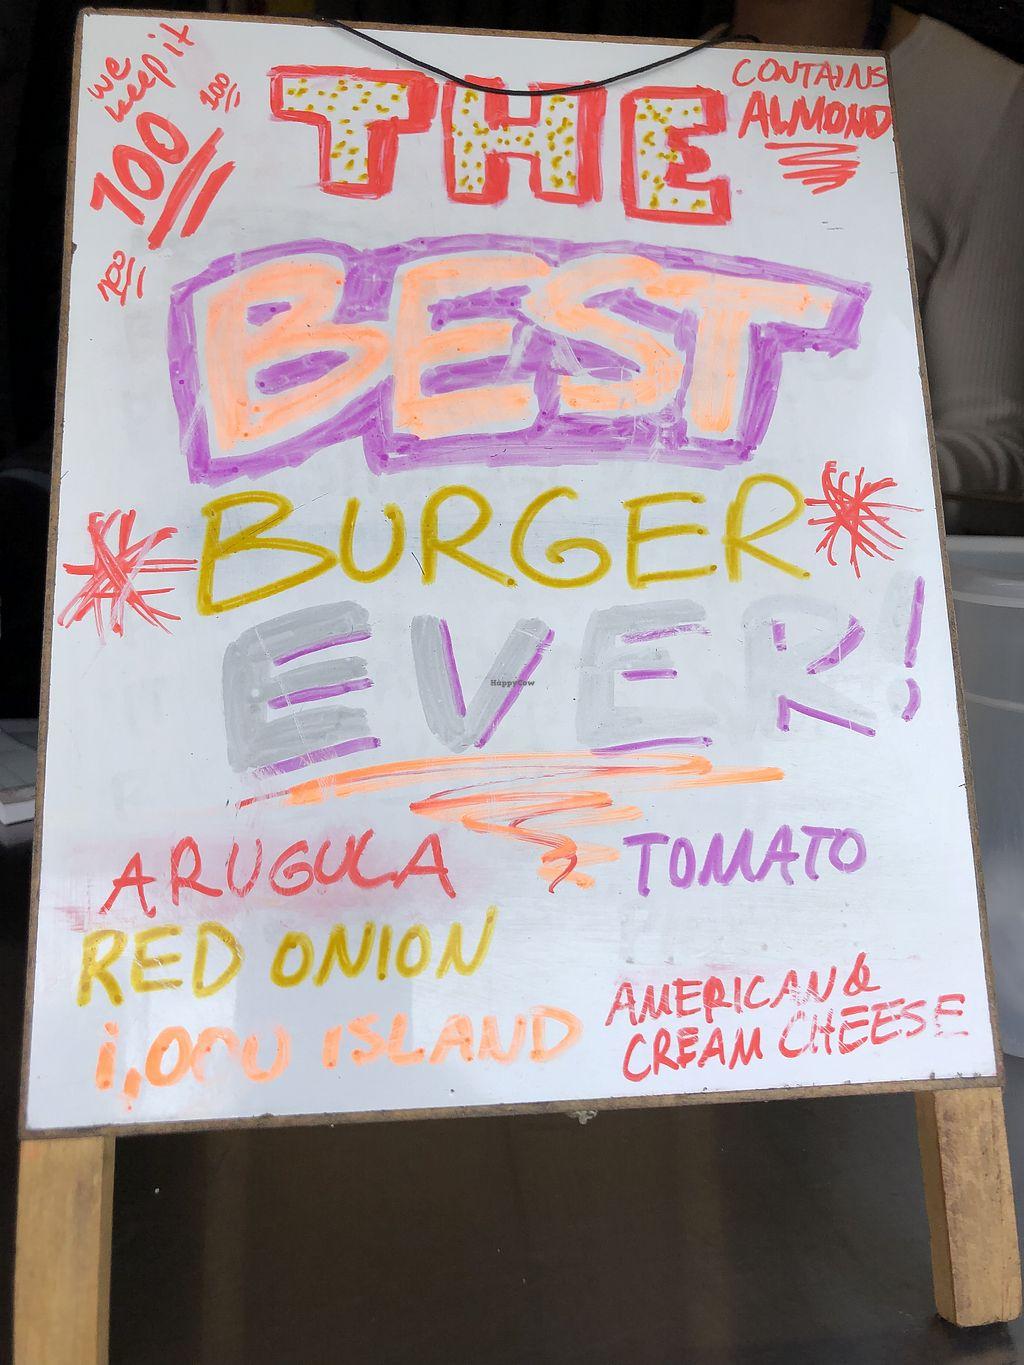 we
keep it
100
100
100
THE
CONTAINS
ALMOND
BEST
BURGER
EVER!
HappyCow
ARUGULA
TOMATO
RED ONION
1,000 ISLAND
AMERICAN &
CREAM CHEESE